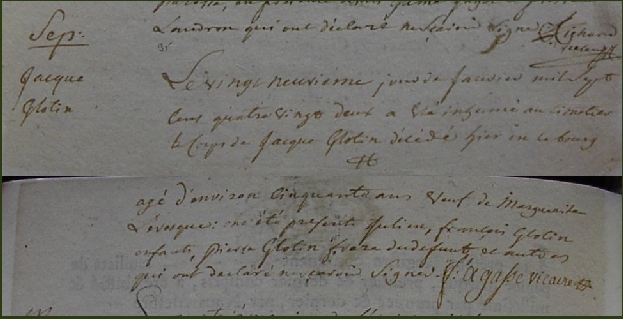 qui ont déclaré ne scavoir signer Richard
Sep:
Jacque
Glotin
Le vingt neuvieme jour de Janvier mil Sept
cens quatre vingt deux a été inhumé au cimetiere
le Corps de Jacque Glotin décédé hier en ce bourg
agé d'environ Cinquante ans Veuf de Marguerite
Levesque: ont été presents Julien, francois Glotin
enfants, pierre Glotin frere du defunt, et autres
qui ont déclaré ne scavoir Signer. agasse vicaire